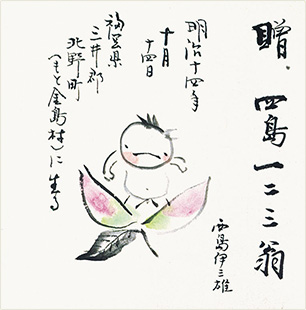 贈. 四島一二三翁
明治十四年
十月
十四日
福岡県
三井郡
北野町
(もと金島村)に生る
西島伊三雄